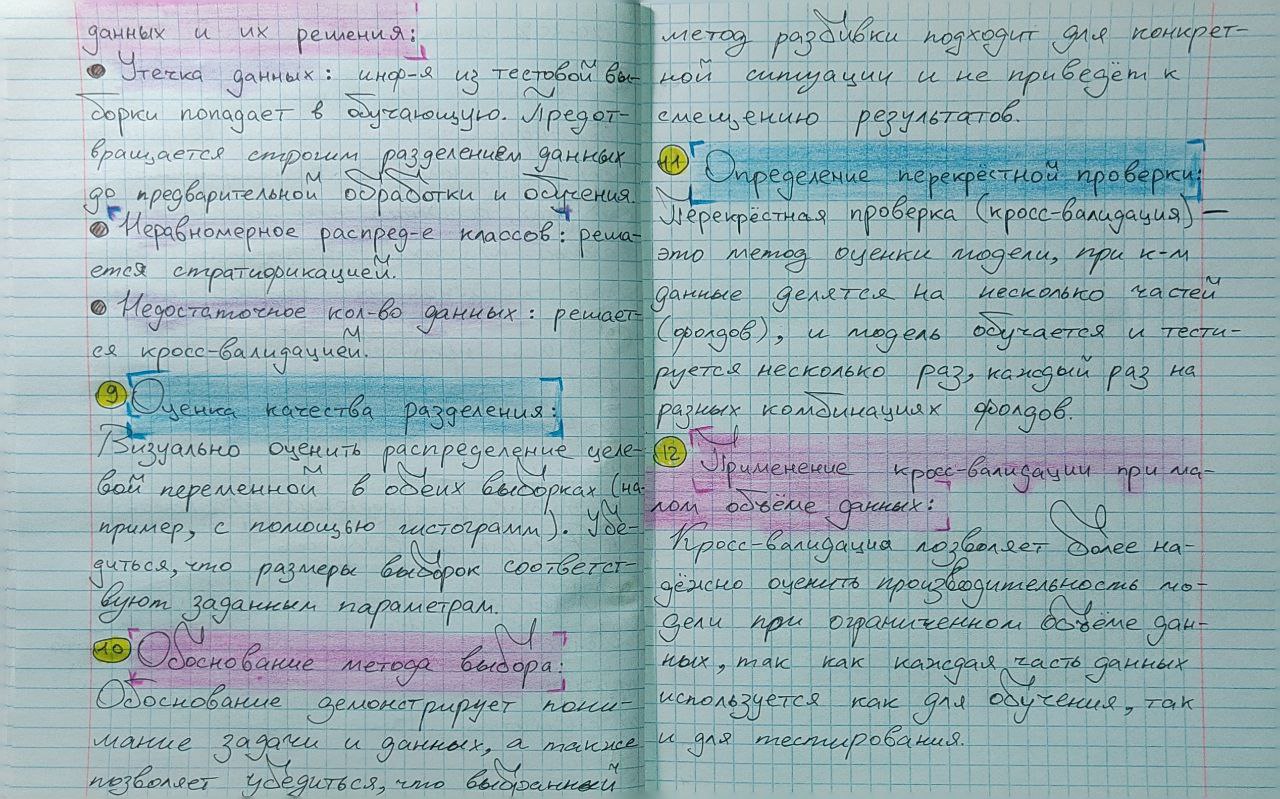 данных и их решения:
Утечка данных: инф-я из тестовой вы-
борки попадает в обучающую. Предот-
вращается строгим разделением данных
до предварительной обработки и обучения.
Неравномерное распред-е классов: реша-
ется стратификацией.
Недостаточное кол-во данных: решает-
ся кросс-валидацией.
9 Оценка качества разделения:
Визуально оценить распределение целе-
вой переменной в обеих выборках (на-
пример, с помощью гистограмм). Убе-
диться, что размеры выборок соответст-
вуют заданным параметрам.
10 Обоснование метода выбора:
Обоснование демонстрирует пони-
мание задачи и данных, а также
позволяет убедиться, что выбранный
метод разбивки подходит для конкрет-
ной ситуации и не приведёт к
смещению результатов.
11 Определение перекрёстной проверки:
Перекрёстная проверка (кросс-валидация) —
это метод оценки модели, при к-м
данные делятся на несколько частей
(фолдов), и модель обучается и тести-
руется несколько раз, каждый раз на
разных комбинациях фолдов.
12 Применение кросс-валидации при ма-
лом объёме данных:
Кросс-валидация позволяет более на-
дёжно оценить производительность мо-
дели при ограниченном объёме дан-
ных, так как каждая часть данных
используется как для обучения, так
и для тестирования.